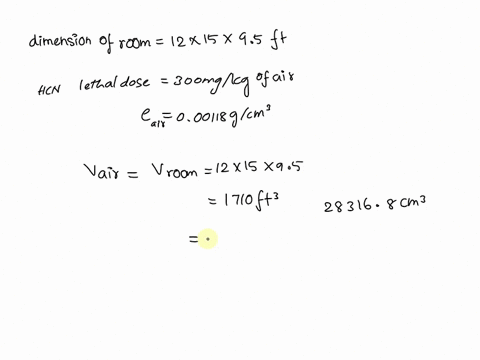 dimension of room = 12 × 15 × 9.5 ft
HCN lethal dose = 300mg/kg of air
ρair = 0.00118 g/cm³
Vair = Vroom = 12 × 15 × 9.5
= 1710 ft³ 28316.8 cm³
=